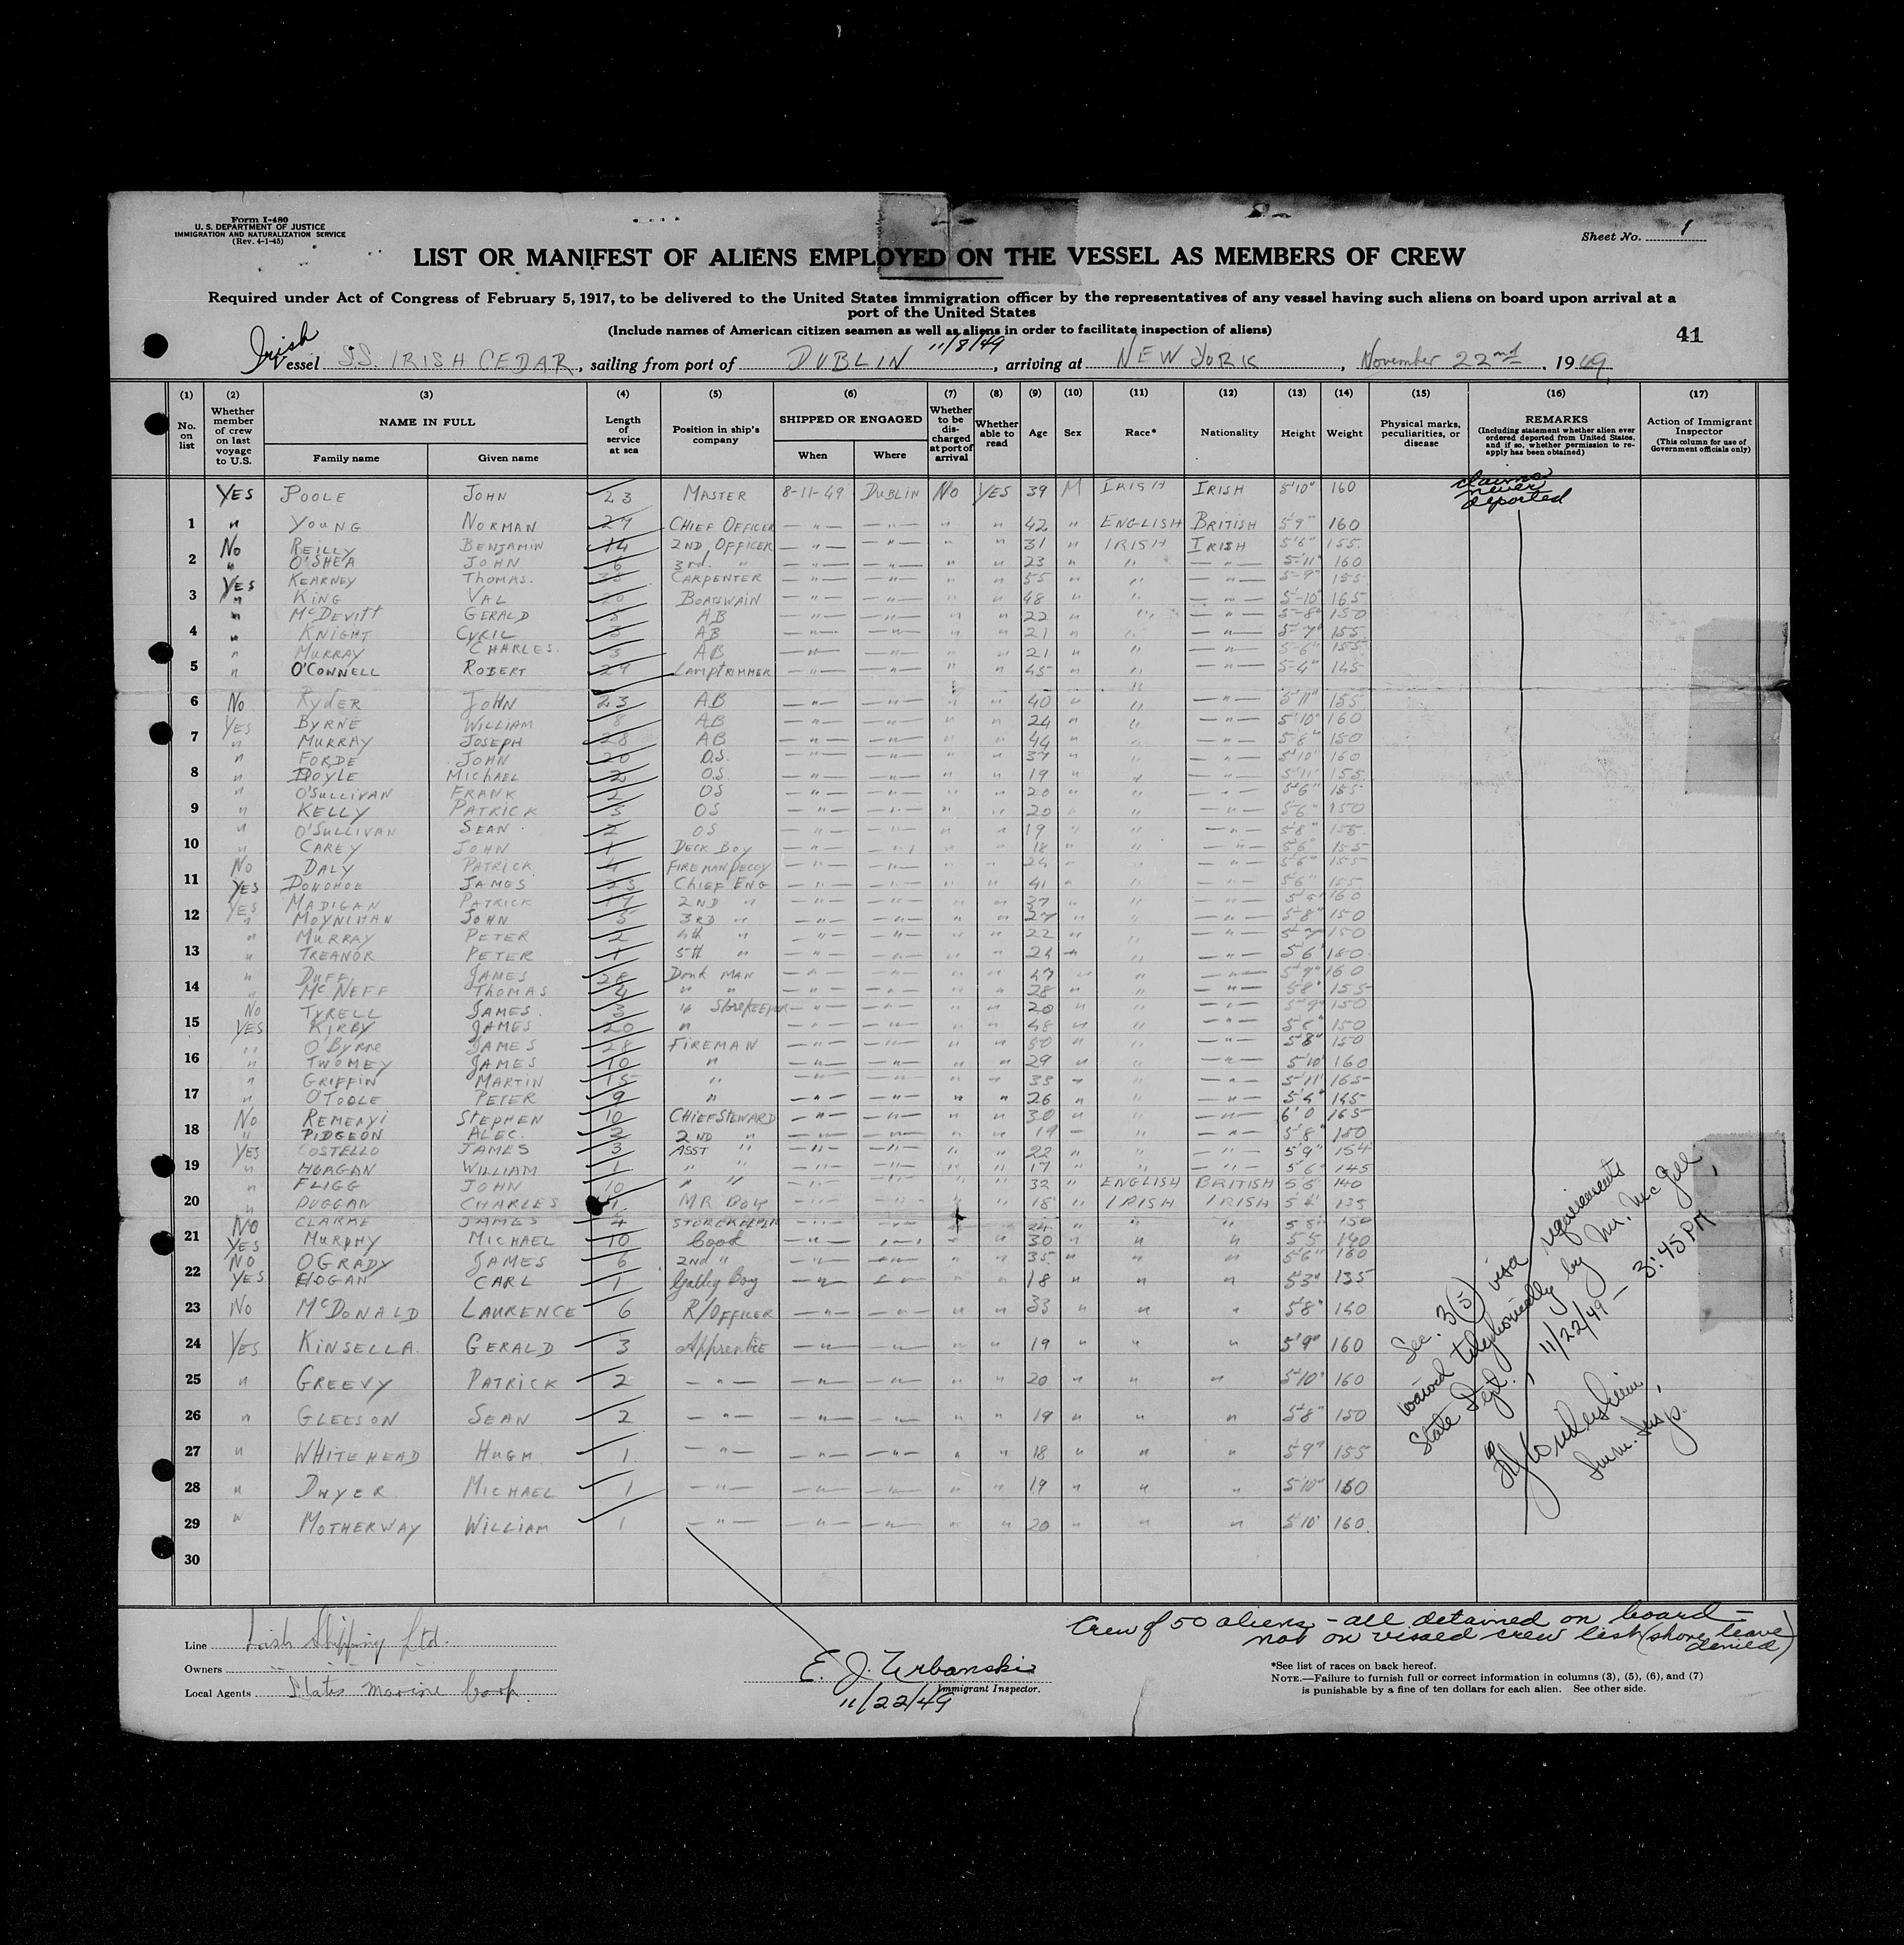 Form I-480
U. S. DEPARTMENT OF JUSTICE
IMMIGRATION AND NATURALIZATION SERVICE
(Rev. 4-1-45)
Sheet No. 1
LIST OR MANIFEST OF ALIENS EMPLOYED ON THE VESSEL AS MEMBERS OF CREW
Required under Act of Congress of February 5, 1917, to be delivered to the United States immigration officer by the representatives of any vessel having such aliens on board upon arrival at a
port of the United States
(Include names of American citizen seamen as well as aliens in order to facilitate inspection of aliens)
41
Irish
11/8/49
Vessel S.S. IRISH CEDAR, sailing from port of DUBLIN, arriving at NEW YORK, November 22nd, 1949
(1) (2) (3) (4) (5) (6) (7) (8) (9) (10) (11) (12) (13) (14) (15) (16) (17)
No. on list
Whether member of crew on last voyage to U.S.
NAME IN FULL
Family name Given name
Length of service at sea
Position in ship's company
SHIPPED OR ENGAGED
When Where
Whether to be discharged at port of arrival
Whether able to read
Age Sex Race* Nationality Height Weight
Physical marks, peculiarities, or disease
REMARKS
(Including statement whether alien ever ordered deported from United States, and if so, whether permission to re-apply has been obtained)
Action of Immigrant Inspector
(This column for use of Government officials only)
claims never deported
YES POOLE JOHN 23 MASTER 8-11-49 DUBLIN NO YES 39 M IRISH IRISH 5'10" 160
1 " YOUNG NORMAN CHIEF OFFICER —"— —"— " " 42 " ENGLISH BRITISH 5'9" 160
No REILLY BENJAMIN 14 2ND OFFICER —"— —"— " " 31 " IRISH IRISH 5'6" 155
2 " O'SHEA JOHN 6 3rd. " —"— —"— " " 23 " " —"— 5'11" 160
YES KEARNEY THOMAS. CARPENTER —"— —"— " " 55 " " —"— 5'9" 155
3 " KING VAL BOATSWAIN —"— —"— " " 48 " " —"— 5'10" 165
" McDEVITT GERALD AB —"— —"— " " 22 " " —"— 5'8" 150
4 " KNIGHT CYRIL AB —"— —"— " " 21 " " —"— 5'7" 155
" MURRAY CHARLES. AB —"— —"— " " 21 " " —"— 5'6" 155
5 " O'CONNELL ROBERT 29 LAMPTRIMMER —"— —"— " " 45 " " —"— 5'4" 145
6 No RYDER JOHN 23 AB —"— —"— " " 40 " " —"— 5'11" 155
YES BYRNE WILLIAM 8 AB —"— —"— " " 24 " " —"— 5'10" 160
7 " MURRAY JOSEPH 28 AB —"— —"— " " 44 " " —"— 5'8" 150
" FORDE JOHN 20 O.S. —"— —"— " " 37 " " —"— 5'10" 160
8 " DOYLE MICHAEL 2 O.S. —"— —"— " " 19 " " —"— 5'11" 155
" O'SULLIVAN FRANK 2 OS —"— —"— " " 20 " " —"— 5'6" 155
9 " KELLY PATRICK 3 OS —"— —"— " " 20 " " —"— 5'6" 150
" O'SULLIVAN SEAN 2 OS —"— —"— " " 19 " " —"— 5'8" 155
10 " CAREY JOHN 1 DECK BOY —"— —"— " " 18 " " —"— 5'6" 155
No DALY PATRICK 4 FIREMAN —"— —"— " " 24 " " —"— 5'6" 155
11 YES DONOHOE JAMES 23 CHIEF ENG —"— —"— " " 41 " " —"— 5'6" 155
YES MADIGAN PATRICK 17 2ND " —"— —"— " " 37 " " —"— 160
12 " MOYNIHAN JOHN 5 3RD " —"— —"— " " 27 " " —"— 5'8" 150
" MURRAY PETER 2 4th " —"— —"— " " 22 " " —"— 5'7" 150
13 " TREANOR PETER 1 5th " —"— —"— " " 24 " " —"— 5'6" 150
" DUFF JAMES 28 Donk MAN —"— —"— " " 47 " " —"— 5'9" 160
14 " McNEFF THOMAS 4 " " —"— —"— " " 28 " " —"— 5'8" 155
No TYRELL JAMES. 3 " STOREKEEPER —"— —"— " " 20 " " —"— 5'9" 150
15 YES KIRBY JAMES 20 " —"— —"— " " 48 " " —"— 5'8" 150
" O'BYRNE JAMES 28 FIREMAN —"— —"— " " 50 " " 5'8" 150
16 " TWOMEY JAMES 10 " —"— —"— " " 29 " " —"— 5'10" 160
" GRIFFIN MARTIN 15 " —"— —"— " " 33 " " —"— 5'11" 165
17 " O'TOOLE PETER 9 " —"— —"— " " 26 " " —"— 5'4" 145
No REMENYI STEPHEN 10 CHIEF STEWARD —"— —"— " " 30 " " —"— 6'0 165
18 " PIDGEON ALEC. 2 2ND " —"— —"— " " 19 " " —"— 5'8" 150
YES COSTELLO JAMES 3 ASST " —"— —"— " " 22 " " —"— 5'9" 154
19 " HORGAN WILLIAM 1 " " —"— —"— " " 17 " " —"— 5'6" 145
" FLIGG JOHN 10 " " —"— —"— " " 32 " ENGLISH BRITISH 5'6" 140
20 " DUGGAN CHARLES 1 MR BOY —"— —"— " " 18 " IRISH IRISH 5'4" 135
No CLARKE JAMES 4 STOREKEEPER —"— —"— " " 24 " " " 5'8" 150
21 YES MURPHY MICHAEL 10 Cook —"— —"— " " 30 " " " 5'5 140
No O GRADY JAMES 6 2nd " —"— —"— " " 35 " " " 5'6" 160
22 YES HOGAN CARL 1 Galley Boy —"— —"— " " 18 " " " 5'3" 135
23 No McDONALD LAURENCE 6 R/OFFICER —"— —"— " " 33 " " " 5'8" 140
24 YES KINSELLA GERALD 3 Apprentice —"— —"— " " 19 " " " 5'9" 160
25 " GREEVY PATRICK 2 —"— —"— —"— " " 20 " " " 5'10" 160
26 " GLEESON SEAN 2 —"— —"— —"— " " 19 " " " 5'8" 150
27 " WHITEHEAD HUGH 1 —"— —"— —"— " " 18 " " " 5'9" 155
28 " DWYER MICHAEL 1 —"— —"— —"— " " 19 " " " 5'10" 160
29 " MOTHERWAY WILLIAM 1 —"— —"— —"— " " 20 " " " 5'10" 160
30
Sec. 3(5) visa requirements
waived telephonically by Mr. McGill,
State Dept. 11/22/49 — 3:45 PM
Imm. Insp.
Crew of 50 aliens – all detained on board –
not on visaed crew list (shore leave denied)
Line Irish Shipping Ltd.
Owners
Local Agents States Marine Corp.
E. J. Urbanski
Immigrant Inspector.
11/22/49
*See list of races on back hereof.
NOTE.—Failure to furnish full or correct information in columns (3), (5), (6), and (7)
is punishable by a fine of ten dollars for each alien. See other side.